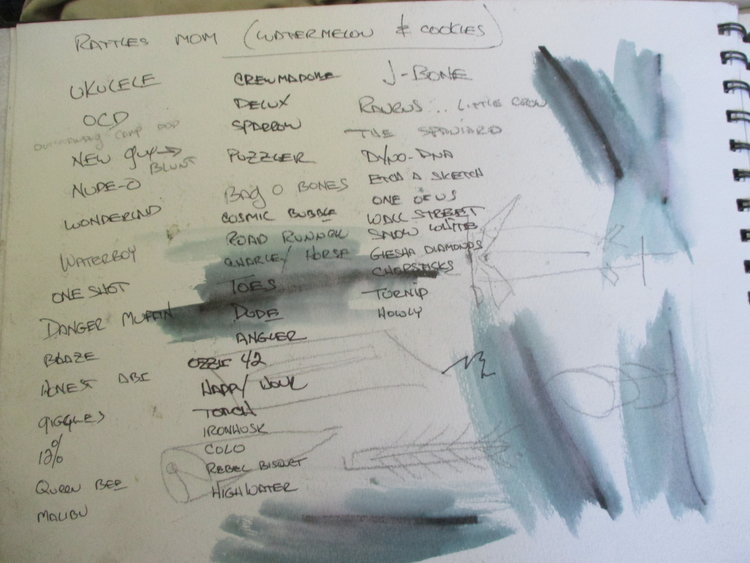 RATTLES MOM (WATERMELON & COOKIES)
UKULELE
OCD
NEW guy → BLUNT
NUDE-O
WONDERLND
WATERBOY
ONE SHOT
DANGER MUFFIN
BLAZE
HONEST ABE
GIGGLES
12%
QUEEN BEE
MALIBU
CREWMADOVE
DELUX
SPARROW
PUZZLER
BAG O BONES
COSMIC BUBBLE
ROAD RUNNER
CHARLEY HORSE
TOES
DUDE
ANGLER
OZZIE 42
HAPPY HOUR
TORCH
IRONHUSK
COLO
REBEL BISQUET
HIGHWATER
J-BONE
LITTLE CROW
THE SPANIARD
DYNO-DNA
ETCH A SKETCH
ONE OF US
WALL STREET
SNOW WHITE
GIESHA DIAMONDS
CHOPSTICKS
TURNIP
HOWLY